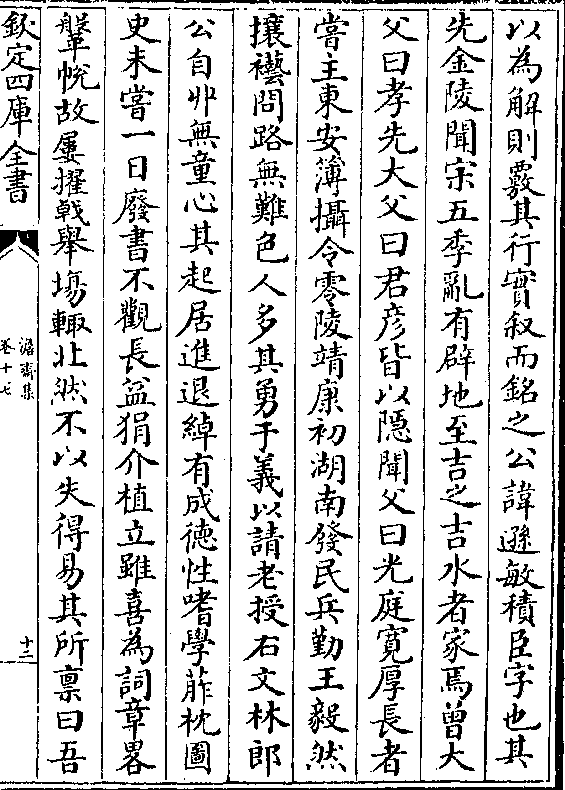 以為解則覈其行實叙而銘之公諱遜敏積臣字也其
先金陵聞宗五季亂有辟地至吉之吉水者家焉曾大
父曰孝先大父曰君彦皆以隱聞父曰光庭寛厚長者
嘗主東安薄攝令零陵靖康初湖南發民兵勤王毅然
攘襼問路無難色人多其勇于義以請老授右文林郎
公自丱無童心其起居進退綽有成徳性嗜學葄枕圖
史未嘗一日廢書不觀長益狷介植立雖喜為詞章畧
鞶帨故屢擢㦸舉場輙北然不以失得易其所禀曰吾
欽定四庫全書
澹齋集
卷十七
十二